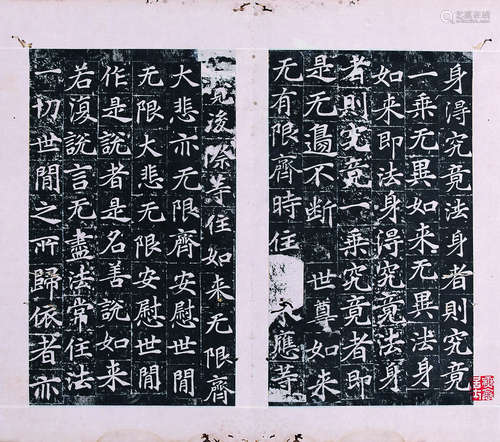 身得究竟法身者則究竟
一乘无異如来无異法身
如来即法身得究竟法身
者則究竟一乘究竟者即
是无邊不斷 世尊如来
无有限齊時住 来應等
後際等住如来无限齊
大悲亦无限齊安慰世閒
无限大悲无限安慰世閒
作是說者是名善說如来
若復說言无盡法常住法
一切世閒之所歸依者亦